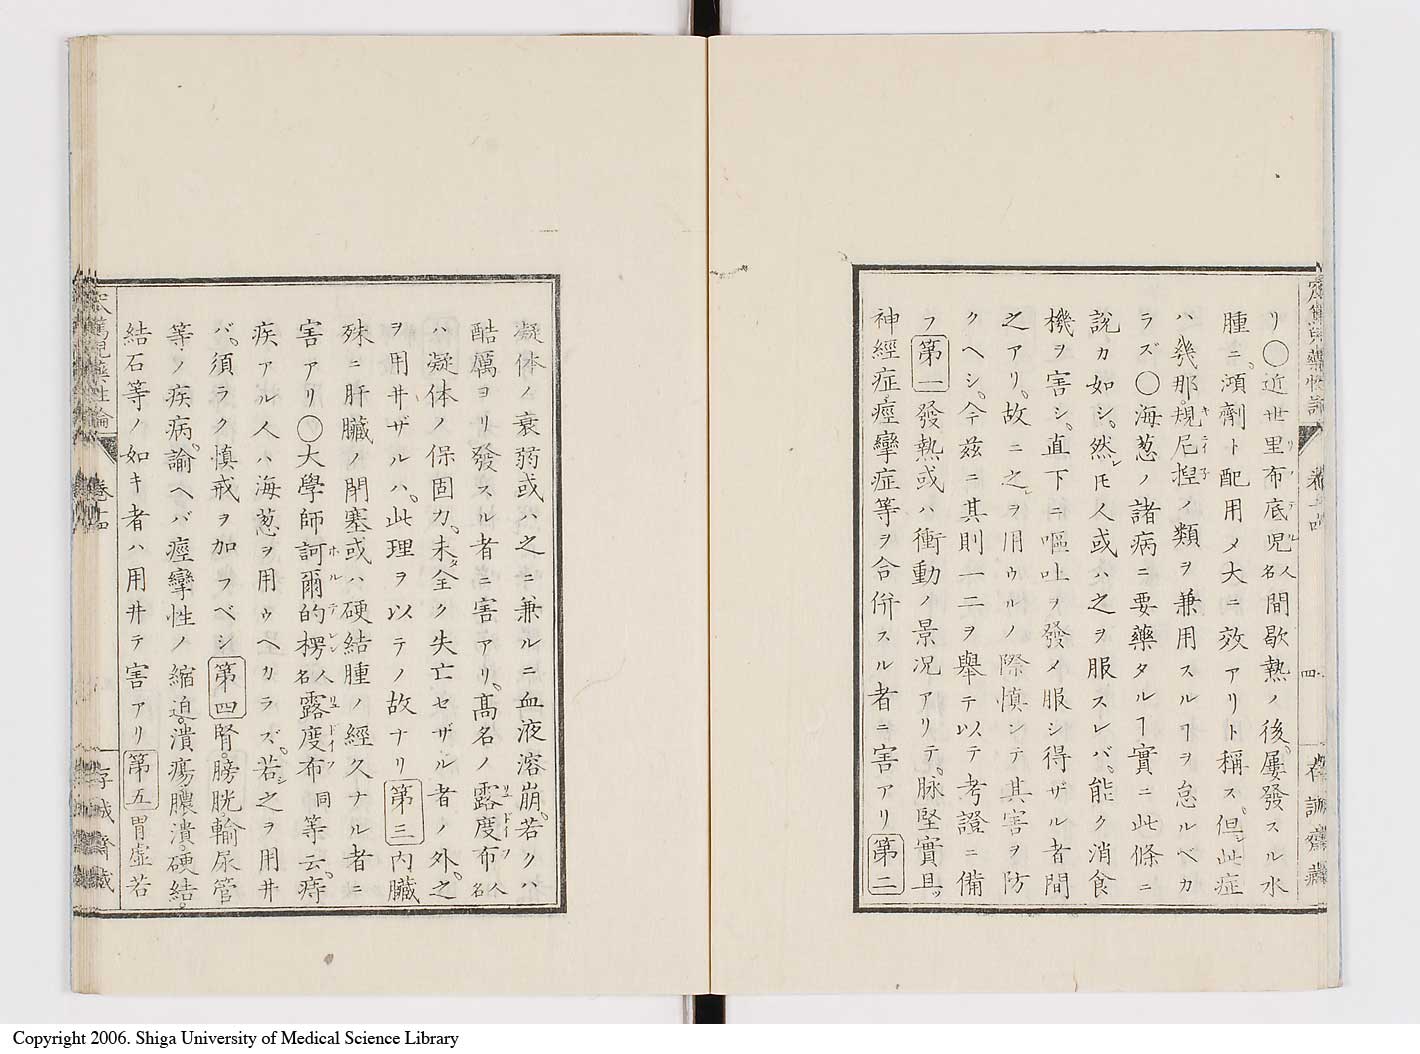 リ〇近世里布底児人名間歇熱ノ後。屢發スル水
腫ニ。澒劑ト配用〆大ニ效アリト稱ス。但シ此症
ハ幾那。規尼捏ノ類ヲ兼用スルヿヲ怠ルベカ
ラズ〇海葱ノ諸病ニ要藥タルヿ實ニ此條ニ
說カ如シ。然レ𪜈人或ハ之ヲ服スレバ。能ク消食
機ヲ害シ。直下ニ嘔吐ヲ發〆服シ得ザル者間
之アリ。故ニ之ヲ用ウルノ際愼ンテ其害ヲ防
クヘシ。今茲ニ其則一二ヲ舉テ以テ考證ニ備
フ第一發熱或ハ衝動ノ景況アリテ。脉堅實且ツ
神經症。痙攣症等ヲ合併スル者ニ害アリ第二
四
存誠齋藏
凝体ノ衰弱或ハ之ニ兼ルニ血液溶崩。若クハ
酷厲ヨリ發スル者ニ害アリ。髙名ノ露度布人名
ハ凝体ノ保固力。未タ全ク失亡セザル者ノ外。之
ヲ用井ザルハ。此理ヲ以テノ故ナリ第三內臟
殊ニ肝臟ノ閉塞或ハ硬結腫ノ經久ナル者ニ
害アリ〇大學師訶爾的楞人名露度布同等云。痔
疾アル人ハ海葱ヲ用ゥヘカラズ。若シ之ヲ用井
バ。須ラク愼戒ヲ加フベシ第四腎。膀胱輸尿管
等ノ疾病。諭ヘバ痙攣性ノ縮迫。潰瘍。膿潰。硬結。
結石等ノ如キ者ハ用井テ害アリ第五胃虛若
窊篤児藥性論
卷十四
存誠齋藏